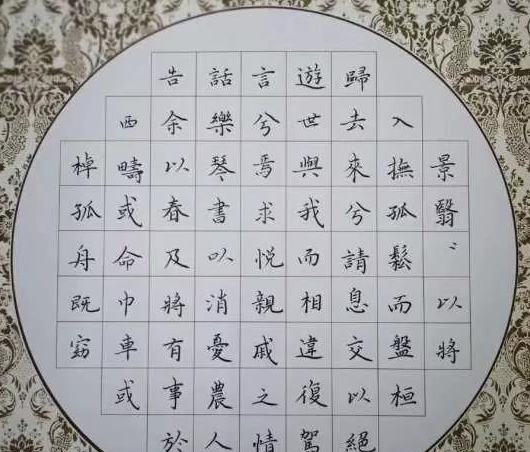 景翳〻以將
入撫孤鬆而盤桓
歸去來兮請息交以絕
遊世與我而相違復駕
言兮焉求悦親戚之情
話樂琴書以消憂農人
告余以春及將有事於
西疇或命巾車或
棹孤舟既窈